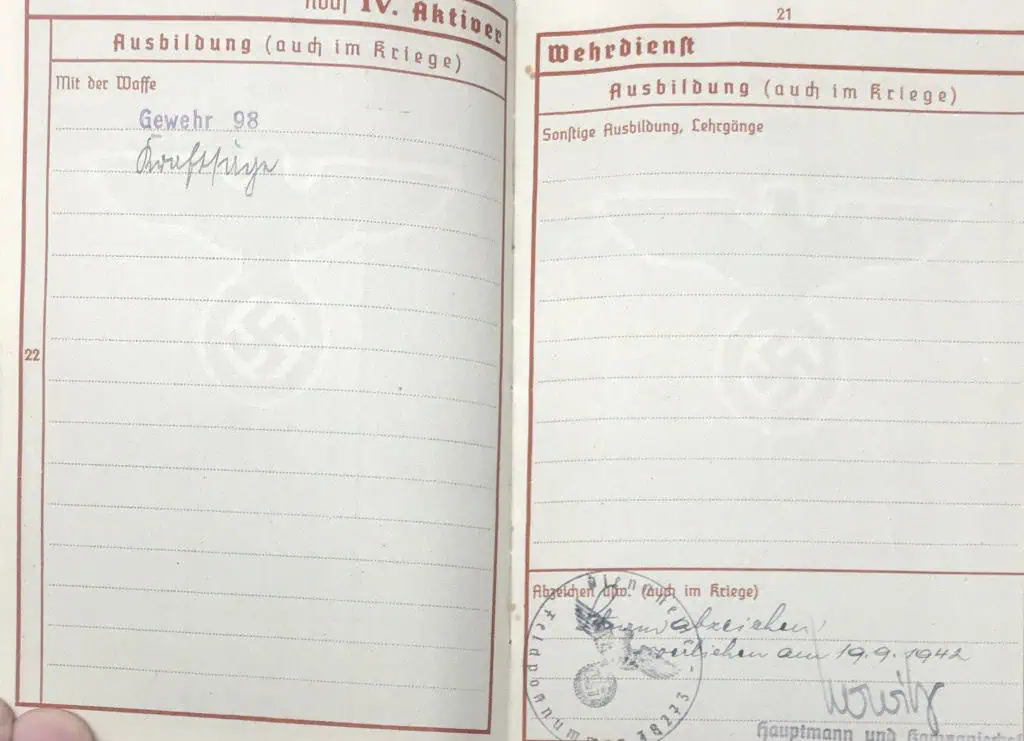 Noch IV. Aktiver
Ausbildung (auch im Kriege)
Mit der Waffe
Gewehr 98
Kraftsäge
22
21
Wehrdienst
Ausbildung (auch im Kriege)
Sonstige Ausbildung, Lehrgänge
Abzeichen usw. (auch im Kriege)
Sturmabzeichen
verliehen am 19.9.1942
Hauptmann und Kompaniechef
Dienststelle Feldpostnummer 18273